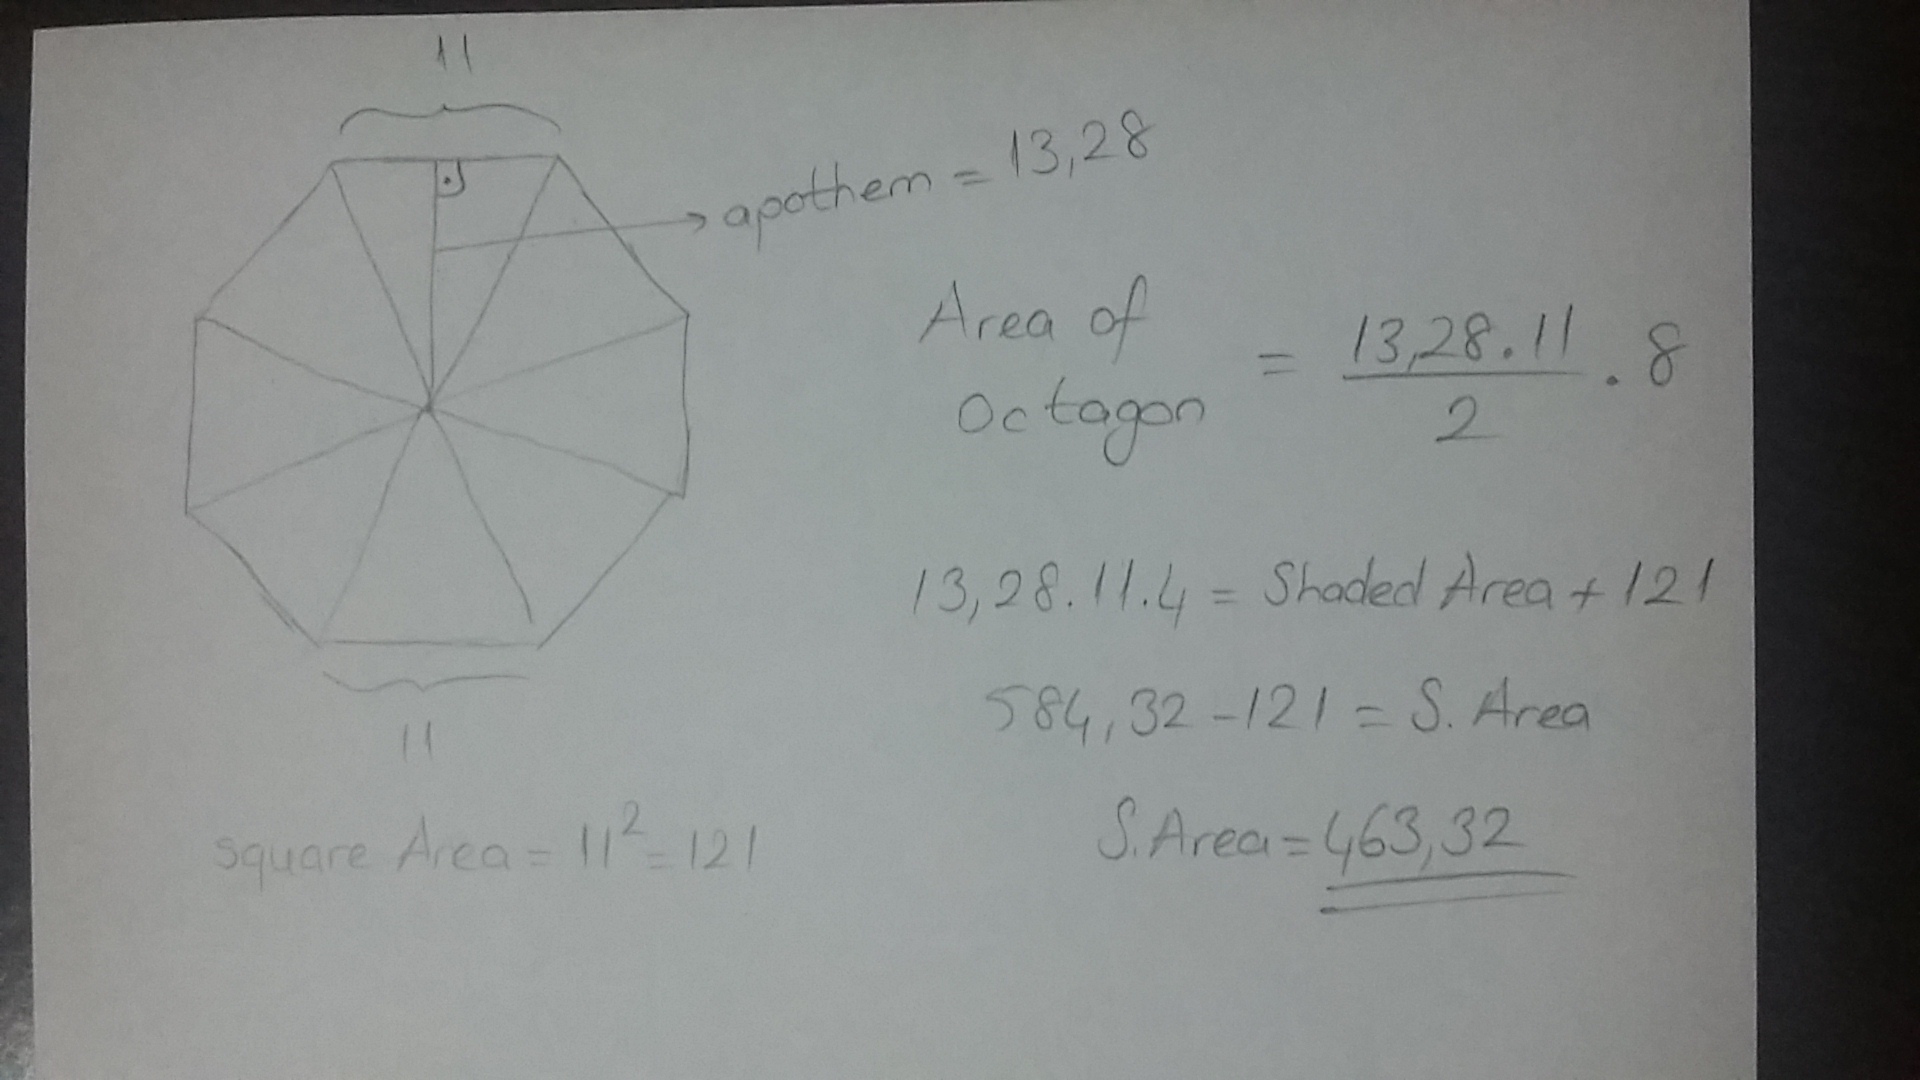 11
apothem = 13,28
Area of Octagon = 13,28.11/2 . 8
13,28.11.4 = Shaded Area + 121
584,32 - 121 = S. Area
S. Area = 463,32
11
square Area = 11² = 121